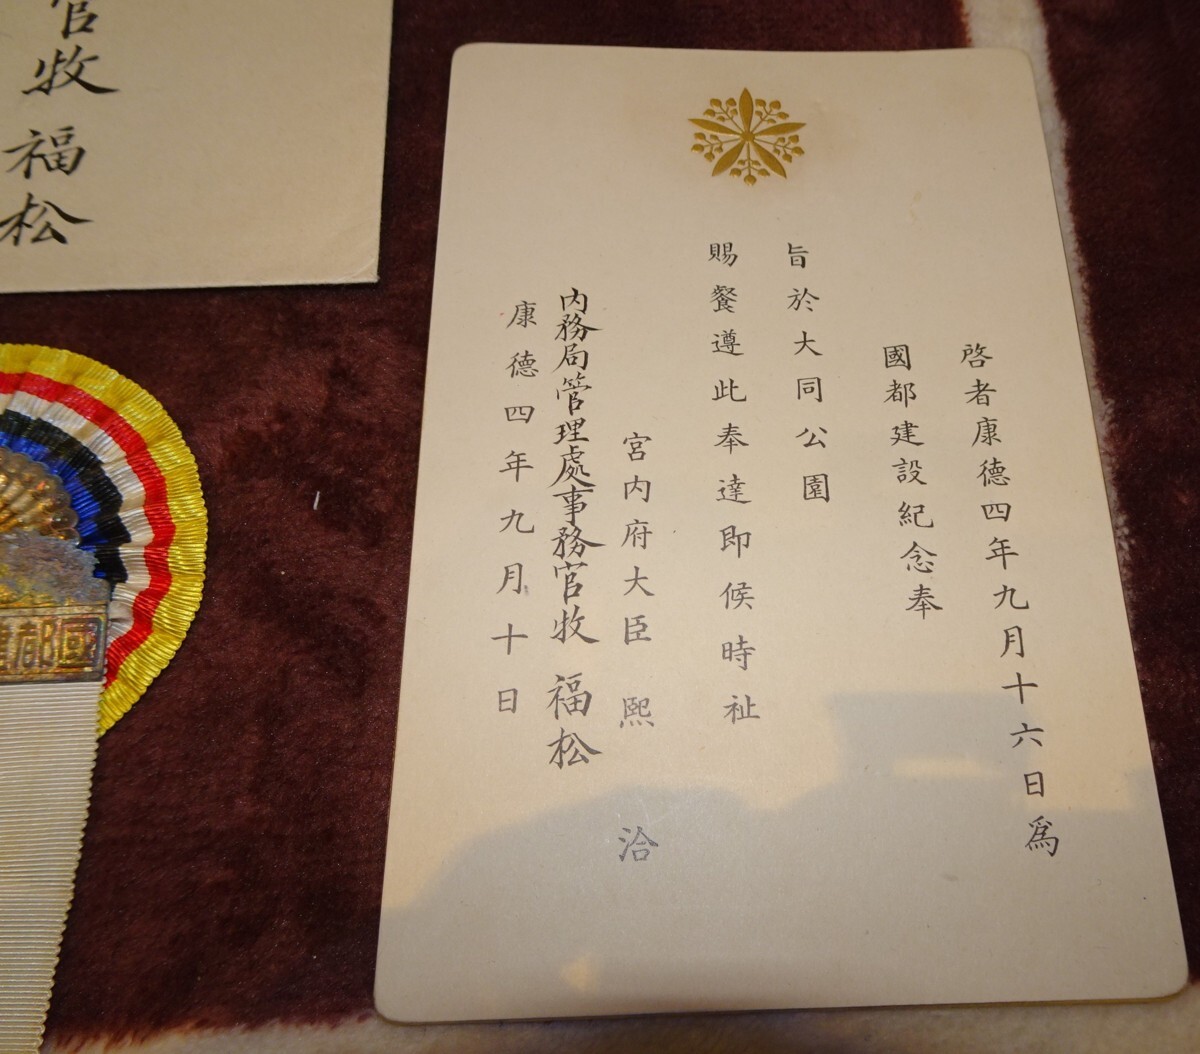 啓者康德四年九月十六日爲
國都建設紀念奉
旨於大同公園
賜餐遵此奉達即候時祉
宮内府大臣 熙 洽
内務局管理處事務官牧 福松
康德四年九月十日
官牧 福松
國都建